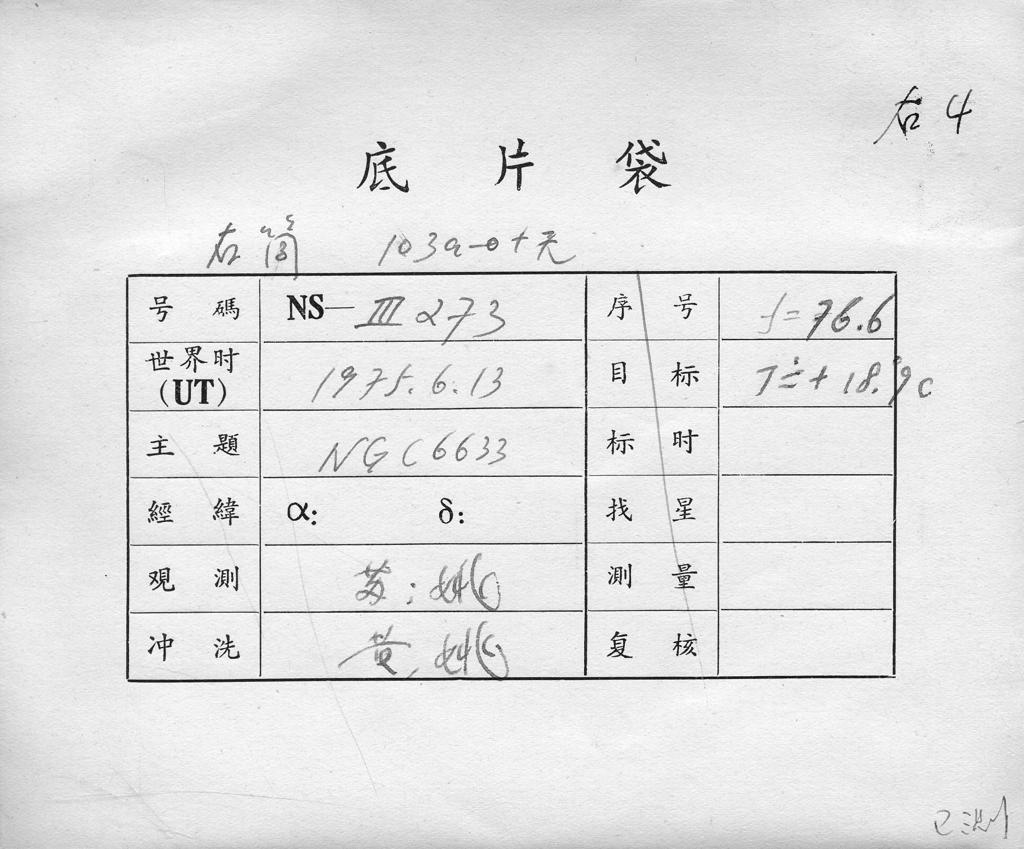 右 4
底 片 袋
右筒 103a-0+天
号 碼 NS—III 273 序 号 f=76.6
世界时 (UT) 1975.6.13 目 标 T=+18.9c
主 題 NGC6633 标 时
經 緯 α: δ: 找 星
观 測 苏:姚 測 量
冲 洗 黄,姚 复 核
已测